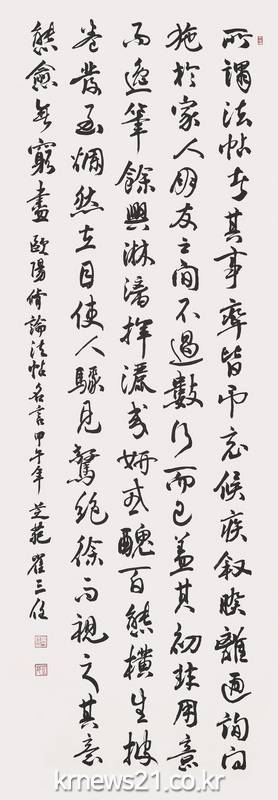 所謂法帖者其事率皆吊哀候疾叙睽離通詢问
施於家人朋友之间不過數行而已蓋其初非用意
而逸筆餘興淋漓揮灑或妍或醜百態橫生披
卷發函爛然在目使人驟見驚絶徐而視之其意
態愈無窮盡 歐陽脩論法帖名言甲午年 芝苑 崔三任
krnews21.co.kr